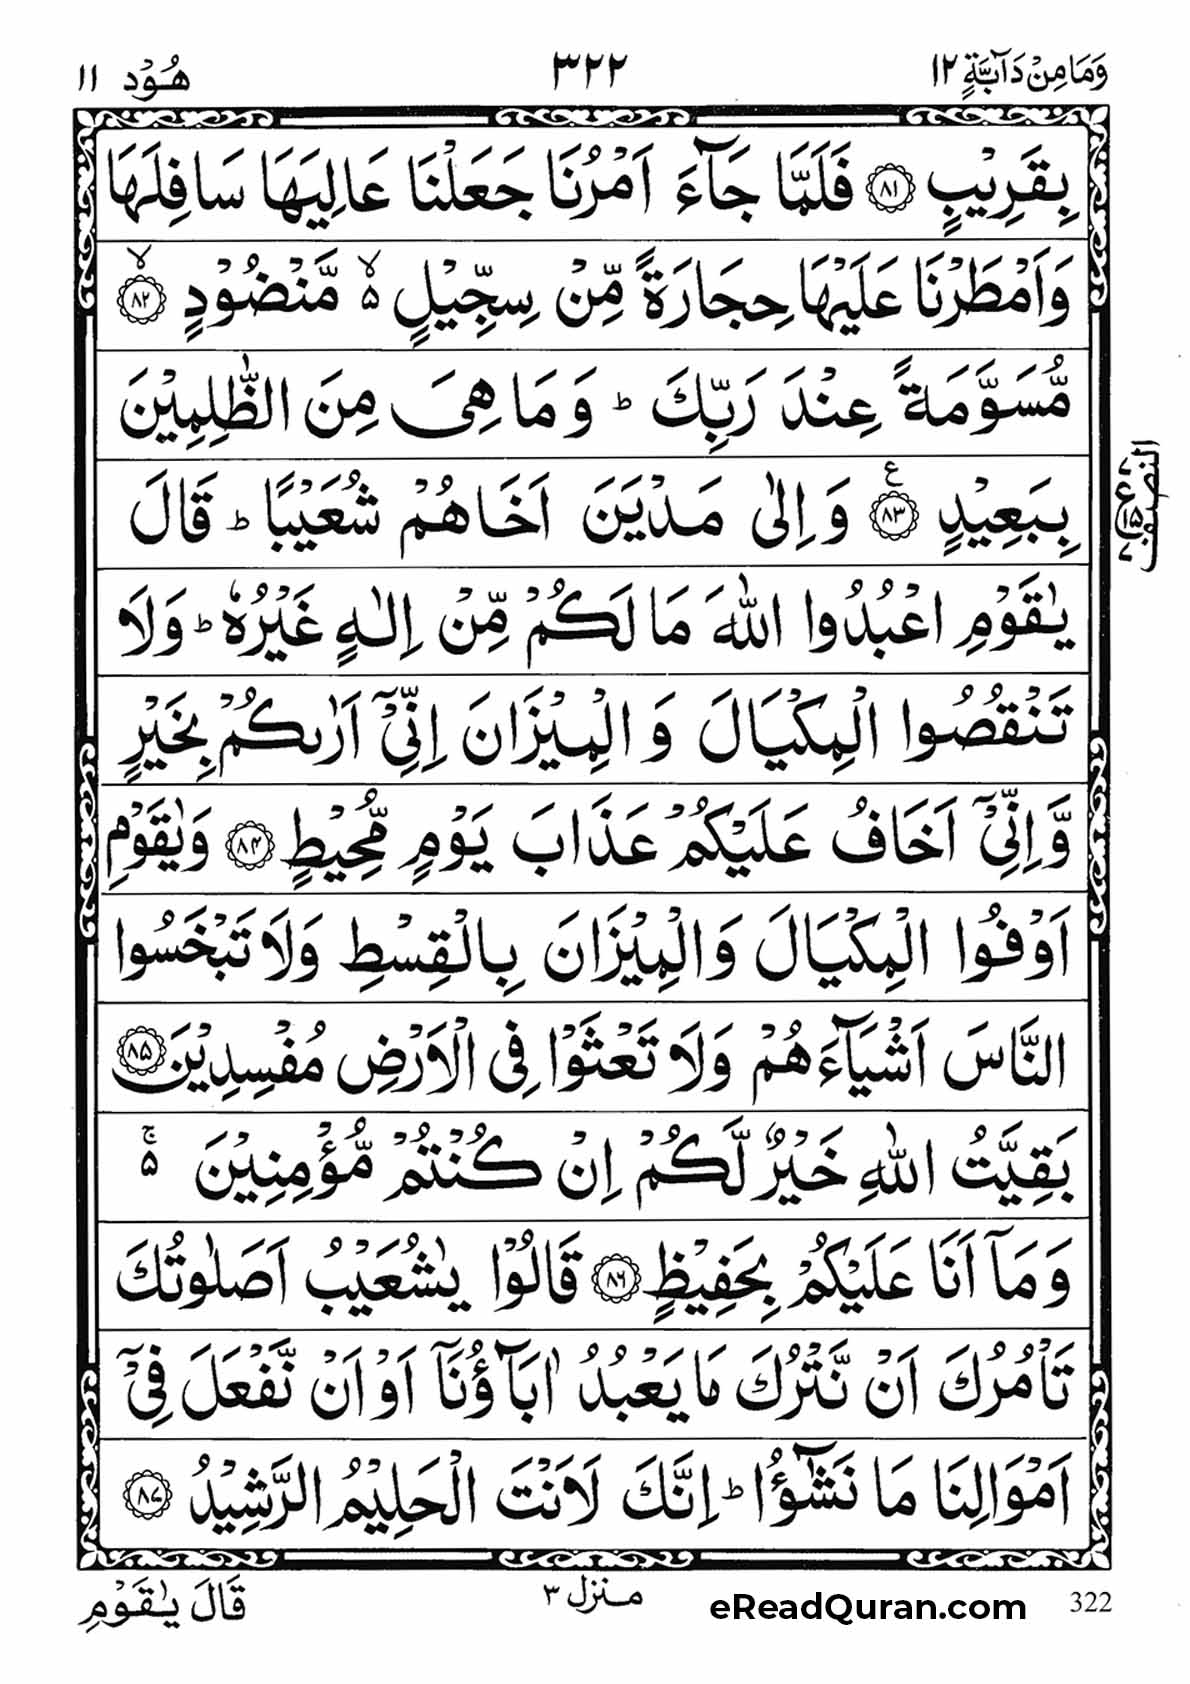 وَمَا مِنْ دَآبَّةٍ ١٢ ٣٢٢ هُوْد ١١
بِقَرِيْبٍ ﴿٨١﴾ فَلَمَّا جَآءَ اَمْرُنَا جَعَلْنَا عَالِيَهَا سَافِلَهَا
وَاَمْطَرْنَا عَلَيْهَا حِجَارَةً مِّنْ سِجِّيْلٍ ۙ۵ مَّنْضُوْدٍ ﴿٨٢﴾ۙ
مُّسَوَّمَةً عِنْدَ رَبِّكَ ؕ وَمَا هِىَ مِنَ الظّٰلِمِيْنَ
بِبَعِيْدٍ ﴿٨٣﴾ ع وَاِلٰى مَدْيَنَ اَخَاهُمْ شُعَيْبًا ؕ قَالَ
النصف
ع ١٥
يٰقَوْمِ اعْبُدُوا اللّٰهَ مَا لَكُمْ مِّنْ اِلٰهٍ غَيْرُهٗ ؕ وَلَا
تَنْقُصُوا الْمِكْيَالَ وَالْمِيْزَانَ اِنِّىْۤ اَرٰىكُمْ بِخَيْرٍ
وَّاِنِّىْۤ اَخَافُ عَلَيْكُمْ عَذَابَ يَوْمٍ مُّحِيْطٍ ﴿٨٤﴾ وَيٰقَوْمِ
اَوْفُوا الْمِكْيَالَ وَالْمِيْزَانَ بِالْقِسْطِ وَلَا تَبْخَسُوا
النَّاسَ اَشْيَآءَهُمْ وَلَا تَعْثَوْا فِى الْاَرْضِ مُفْسِدِيْنَ ﴿٨٥﴾
بَقِيَّتُ اللّٰهِ خَيْرٌ لَّكُمْ اِنْ كُنْتُمْ مُّؤْمِنِيْنَ ۚ۵
وَمَاۤ اَنَا عَلَيْكُمْ بِحَفِيْظٍ ﴿٨٦﴾ قَالُوْا يٰشُعَيْبُ اَصَلٰوتُكَ
تَاْمُرُكَ اَنْ نَّتْرُكَ مَا يَعْبُدُ اٰبَآؤُنَاۤ اَوْ اَنْ نَّفْعَلَ فِىْۤ
اَمْوَالِنَا مَا نَشٰٓؤُا ؕ اِنَّكَ لَاَنْتَ الْحَلِيْمُ الرَّشِيْدُ ﴿٨٧﴾
322 eReadQuran.com منزل ٣ قَالَ يٰقَوْمِ